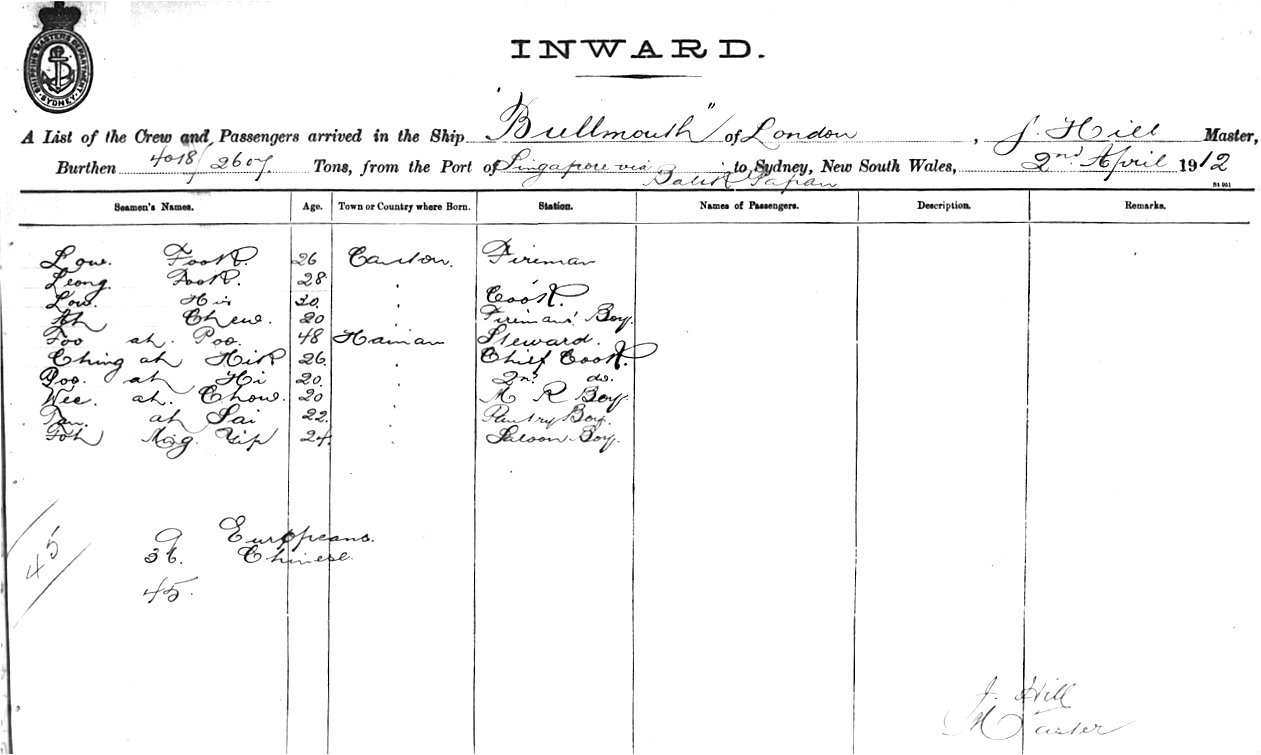 SHIPPING MASTERS DEPARTMENT
SYDNEY
INWARD.
A List of the Crew and Passengers arrived in the Ship "Bullmouth" of London, J. Hill Master,
Burthen 4018/2607. Tons, from the Port of Singapore via Balik Papan to Sydney, New South Wales, 2nd April 1912
S4 951
Seamen's Names. Age. Town or Country where Born. Station. Names of Passengers. Description. Remarks.
Low. Fook. 26 Canton. Fireman
Leong. Fook. 28 "
Low. His 30. " Cook.
Ah Chew. 20 " Firemans' Boy.
Foo ah. Poo. 48 Hainan Steward.
Ching ah Hik 26. " Chief Cook.
Poo. ah Hi 20. " 2nd do.
Wee. ah. Chow. 20 " M R Boy.
Tan. ah Sai 22. " Pantry Boy.
Foh Yip 24 " Saloon Boy.
9 Europeans.
36. Chinese.
45
45.
J. Hill
Master